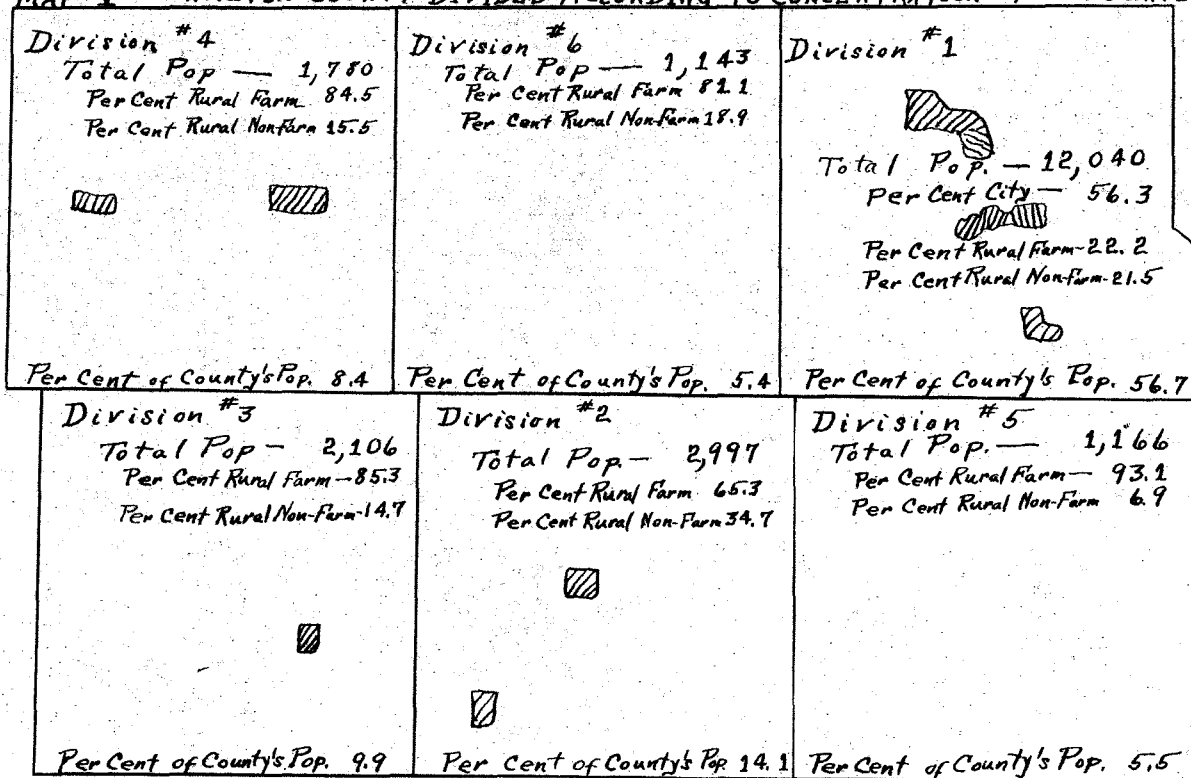 MAP 1
COUNTY DIVIDED ACCORDING TO CONCENTRATION
Division #4
Total Pop — 1,780
Per Cent Rural Farm 84.5
Per Cent Rural Non-Farm 15.5
Per Cent of County's Pop. 8.4
Division #6
Total Pop — 1,143
Per Cent Rural Farm 81.1
Per Cent Rural Non-Farm 18.9
Per Cent of County's Pop. 5.4
Division #1
Total Pop. — 12,040
Per Cent City — 56.3
Per Cent Rural Farm - 22.2
Per Cent Rural Non-Farm - 21.5
Per Cent of County's Pop. 56.7
Division #3
Total Pop — 2,106
Per Cent Rural Farm — 85.3
Per Cent Rural Non-Farm - 14.7
Per Cent of County's Pop. 9.9
Division #2
Total Pop. — 2,997
Per Cent Rural Farm 65.3
Per Cent Rural Non-Farm 34.7
Per Cent of County's Pop 14.1
Division #5
Total Pop. — 1,166
Per Cent Rural Farm — 93.1
Per Cent Rural Non-Farm 6.9
Per Cent of County's Pop. 5.5